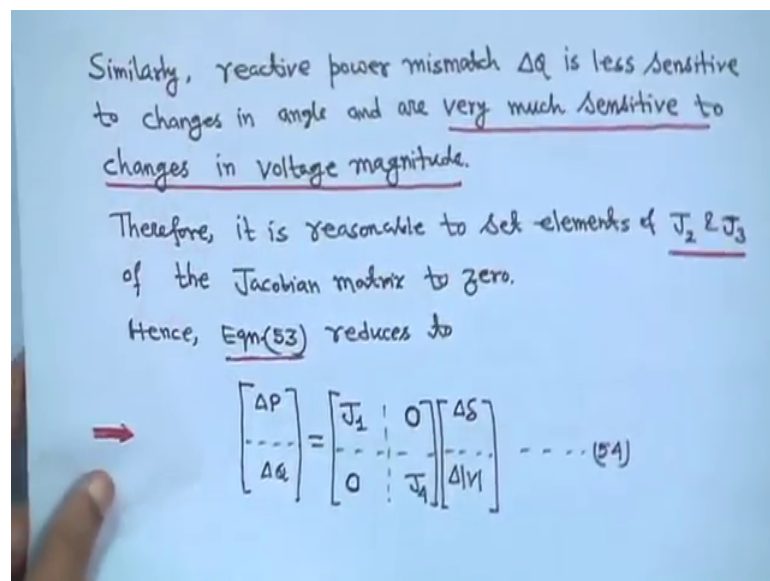 Similarly, reactive power mismatch ΔQ is less sensitive
to changes in angle and are very much sensitive to
changes in voltage magnitude.
Therefore, it is reasonable to set elements of J₂ & J₃
of the Jacobian matrix to zero.
Hence, Eqn.(53) reduces to
[ΔP] = [J₁ 0] [Δδ] ---- (54)
[ΔQ] [0 J₄] [Δ|V|]